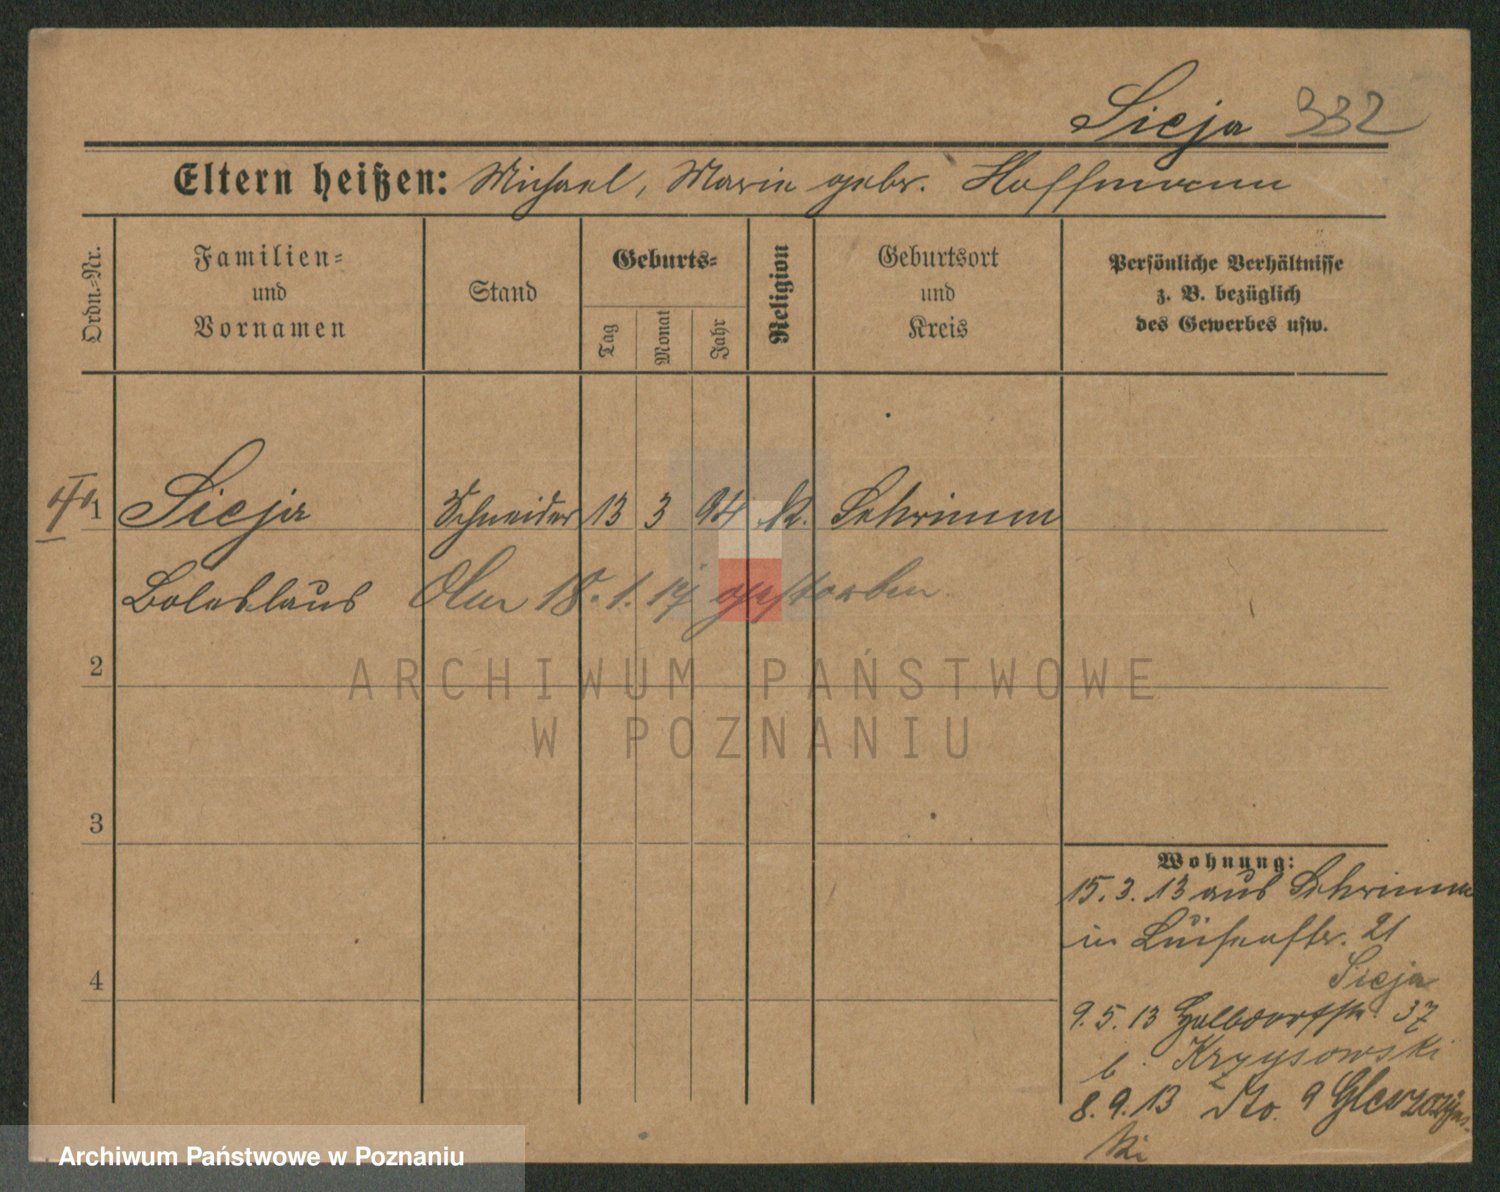 Sieja 332
Eltern heißen: Michael, Marie gebr. Hoffmann
Ordn.=Nr.
Familien=
und
Vornamen
Stand
Geburts=
Tag
Monat
Jahr
Religion
Geburtsort
und
Kreis
Persönliche Verhältnisse
z. B. bezüglich
des Gewerbes usw.
1 Sieja Schneider 13 3 94 k. Schrimm
Boleslaus Am 18.1.19 gestorben
2
ARCHIWUM PAŃSTWOWE
W POZNANIU
3
Wohnung:
15.3.13 aus Schrimm
in Luisenstr. 21
Sieja
4
9.5.13 Halbdorfstr. 37
b. Krzysowski
8.9.13 dto. 9
ki
Archiwum Państwowe w Poznaniu